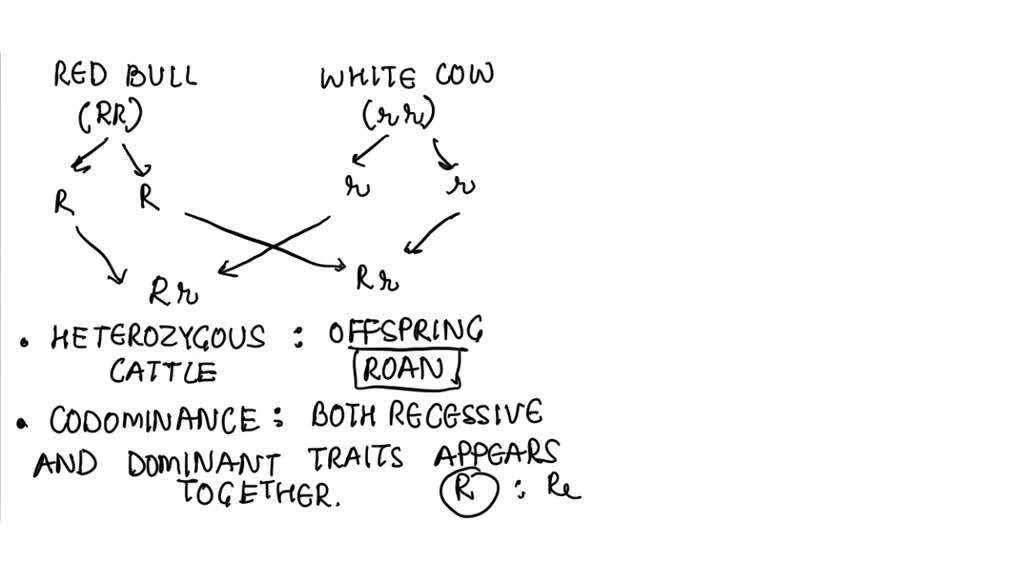 RED BULL WHITE COW
(RR) (rr)
R R r r
Rr Rr
• HETEROZYGOUS : OFFSPRING
CATTLE ROAN
• CODOMINANCE : BOTH RECESSIVE
AND DOMINANT TRAITS APPEARS
TOGETHER. R : Re